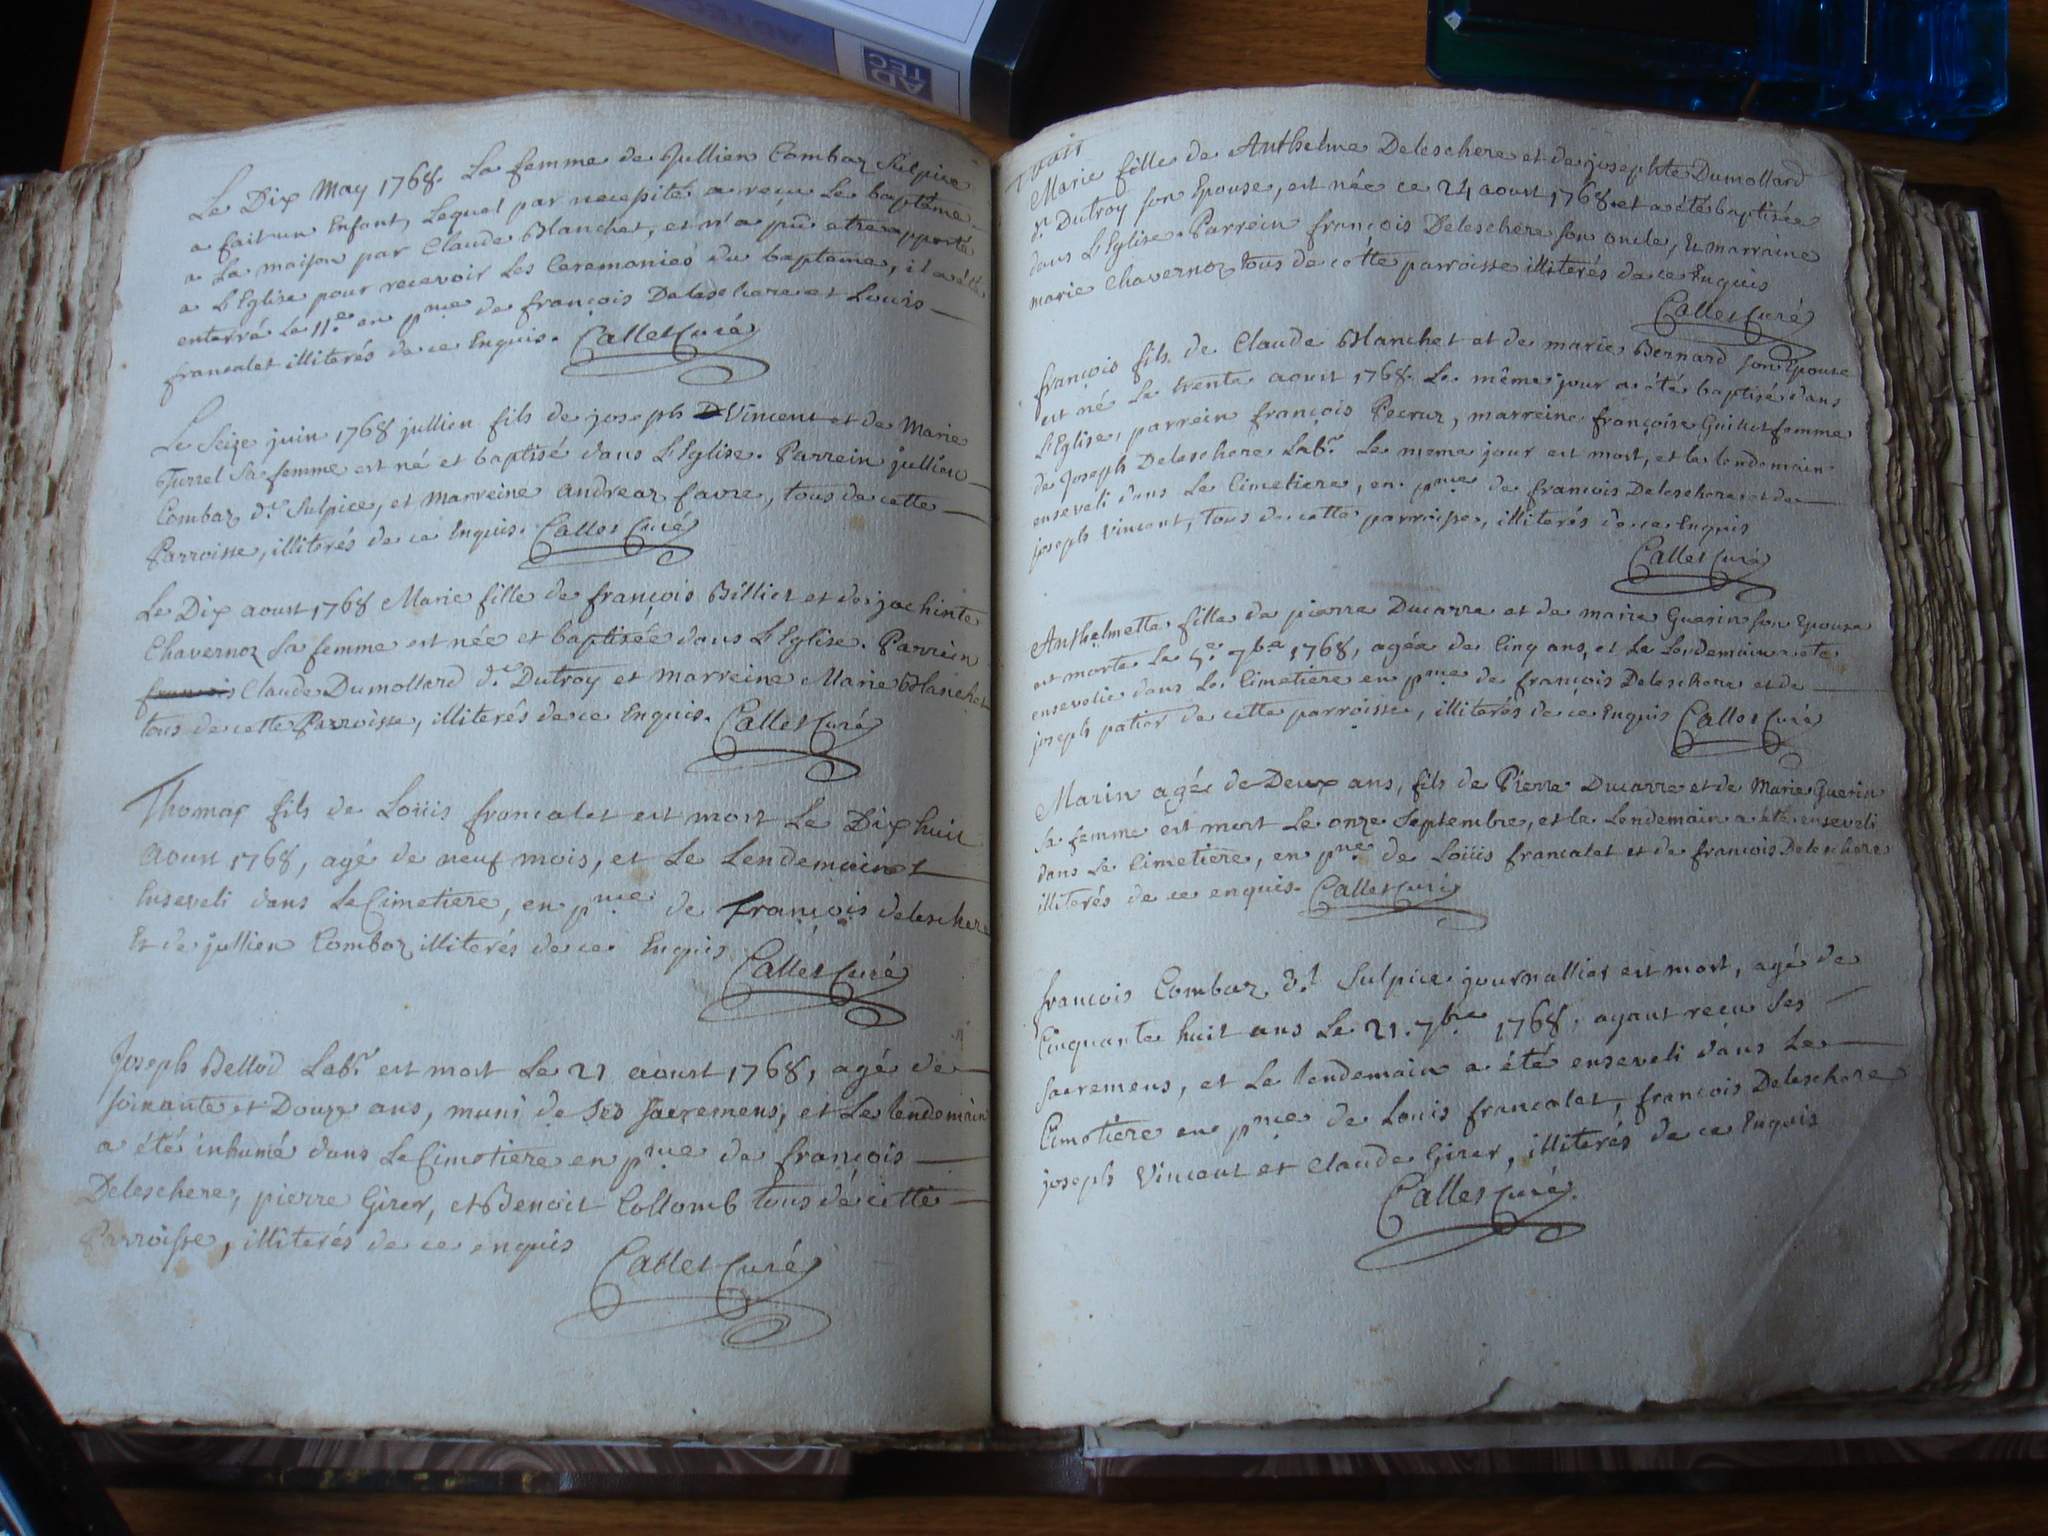 AD
TEC
Le Dix May 1768. La femme de Jullien Combaz Sulpice
a fait un Enfant, Lequel par necessité a reçu Le baptême
a La maison par Claude Blanchet, et n'a pû etre apporté
a L'Eglise pour recevoir Les Ceremonies du bapteme, il a été
enterré Le 11e en pnce de françois Deleschere et Louis
francalet illiterés de ce Enquis. Callet Curé
Le Seize juin 1768 jullien fils de joseph Vincent et de Marie
Turrel Sa femme est né et baptisé dans L'Eglise. Parrein jullien
Combaz dt Sulpice, et marreine andreaz favre, tous de cette
Parroisse, illiterés de ce Enquis. Callet Curé
Le Dix aoust 1768 Marie fille de françois Billiet et de jachinte
Chavernoz Sa femme est née et baptisée dans L'Eglise. Parrein
françois Claude Dumollard dt Dutroy et marreine Marie Blanchet
tous de cette Parroisse, illiterés de ce Enquis. Callet Curé
Thomas fils de Loüis francalet est mort Le Dix huit
aoust 1768, agé de neuf mois, et Le Lendemain
Enseveli dans Le Cimetiere, en pnce de françois deleschere
Et de jullien Combaz illiterés de ce Enquis
Callet Curé
Joseph Bellod Labr est mort Le 21 aoust 1768, agé de
soixante et Douze ans, muni de ses sacremens, et Le lendemain
a été inhumé dans Le Cimetiere en pnce de françois
Deleschere, pierre Girer, et Benoit Collomb tous de cette
Parroisse, illiterés de ce enquis
Callet Curé
Marie fille de Anthelme Deleschere et de josephte Dumollard
dt Dutroy son Epouse, est née ce 24 aoust 1768 et a été baptisée
dans L'Eglise. Parrein françois Deleschere son oncle, Et marraine
marie Chavernoz tous de cette parroisse illiterés de ce Enquis
Callet Curé
françois fils de Claude Blanchet et de marie Bernard son Epouse
est né Le trente aoust 1768. Le même jour a été baptisé dans
L'Eglise, parrein françois Pecruz, marreine françoise Guittet femme
de Joseph Deleschere Labr. Le meme jour est mort, et le lendemain
enseveli dans Le Cimetiere, en pnce de francois Deleschere et de
joseph Vincent, tous de cette parroisse, illiterés de ce Enquis
Callet Curé
Anthelmette fille de pierre Ducarre et de marie Guerin son Epouse
est morte Le 5e 7bre 1768, agée de Cinq ans, et Le Lendemain a été
ensevelie dans Le Cimetiere en pnce de françois Deleschere et de
joseph patier de cette parroisse, illiterés de ce Enquis Callet Curé
Marin agée de Deux ans, fils de Pierre Ducarre et de Marie Guerin
Sa femme est mort Le onze Septembre, et le Lendemain a été enseveli
dans Le Cimetiere, en pnce de Loüis francalet et de françois Deleschere
illiterés de ce enquis. Callet Curé
francois Combaz dt Sulpice journallier est mort, agé de
Cinquante huit ans Le 21. 7bre 1768, ayant reçu Ses
sacremens, et Le lendemain a été enseveli dans Le
Cimetiere en pnce de Louis francalet, francois Deleschere
joseph Vincent et Claude Girer, illiterés de ce Enquis
Callet Curé